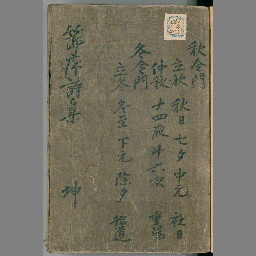 秋令門
立秋 秋日 七夕 中元 社日
仲秋 十四夜 十六夜 重陽
冬令門
立冬 冬至 下元 除夕 拾遺
節序詩集 坤